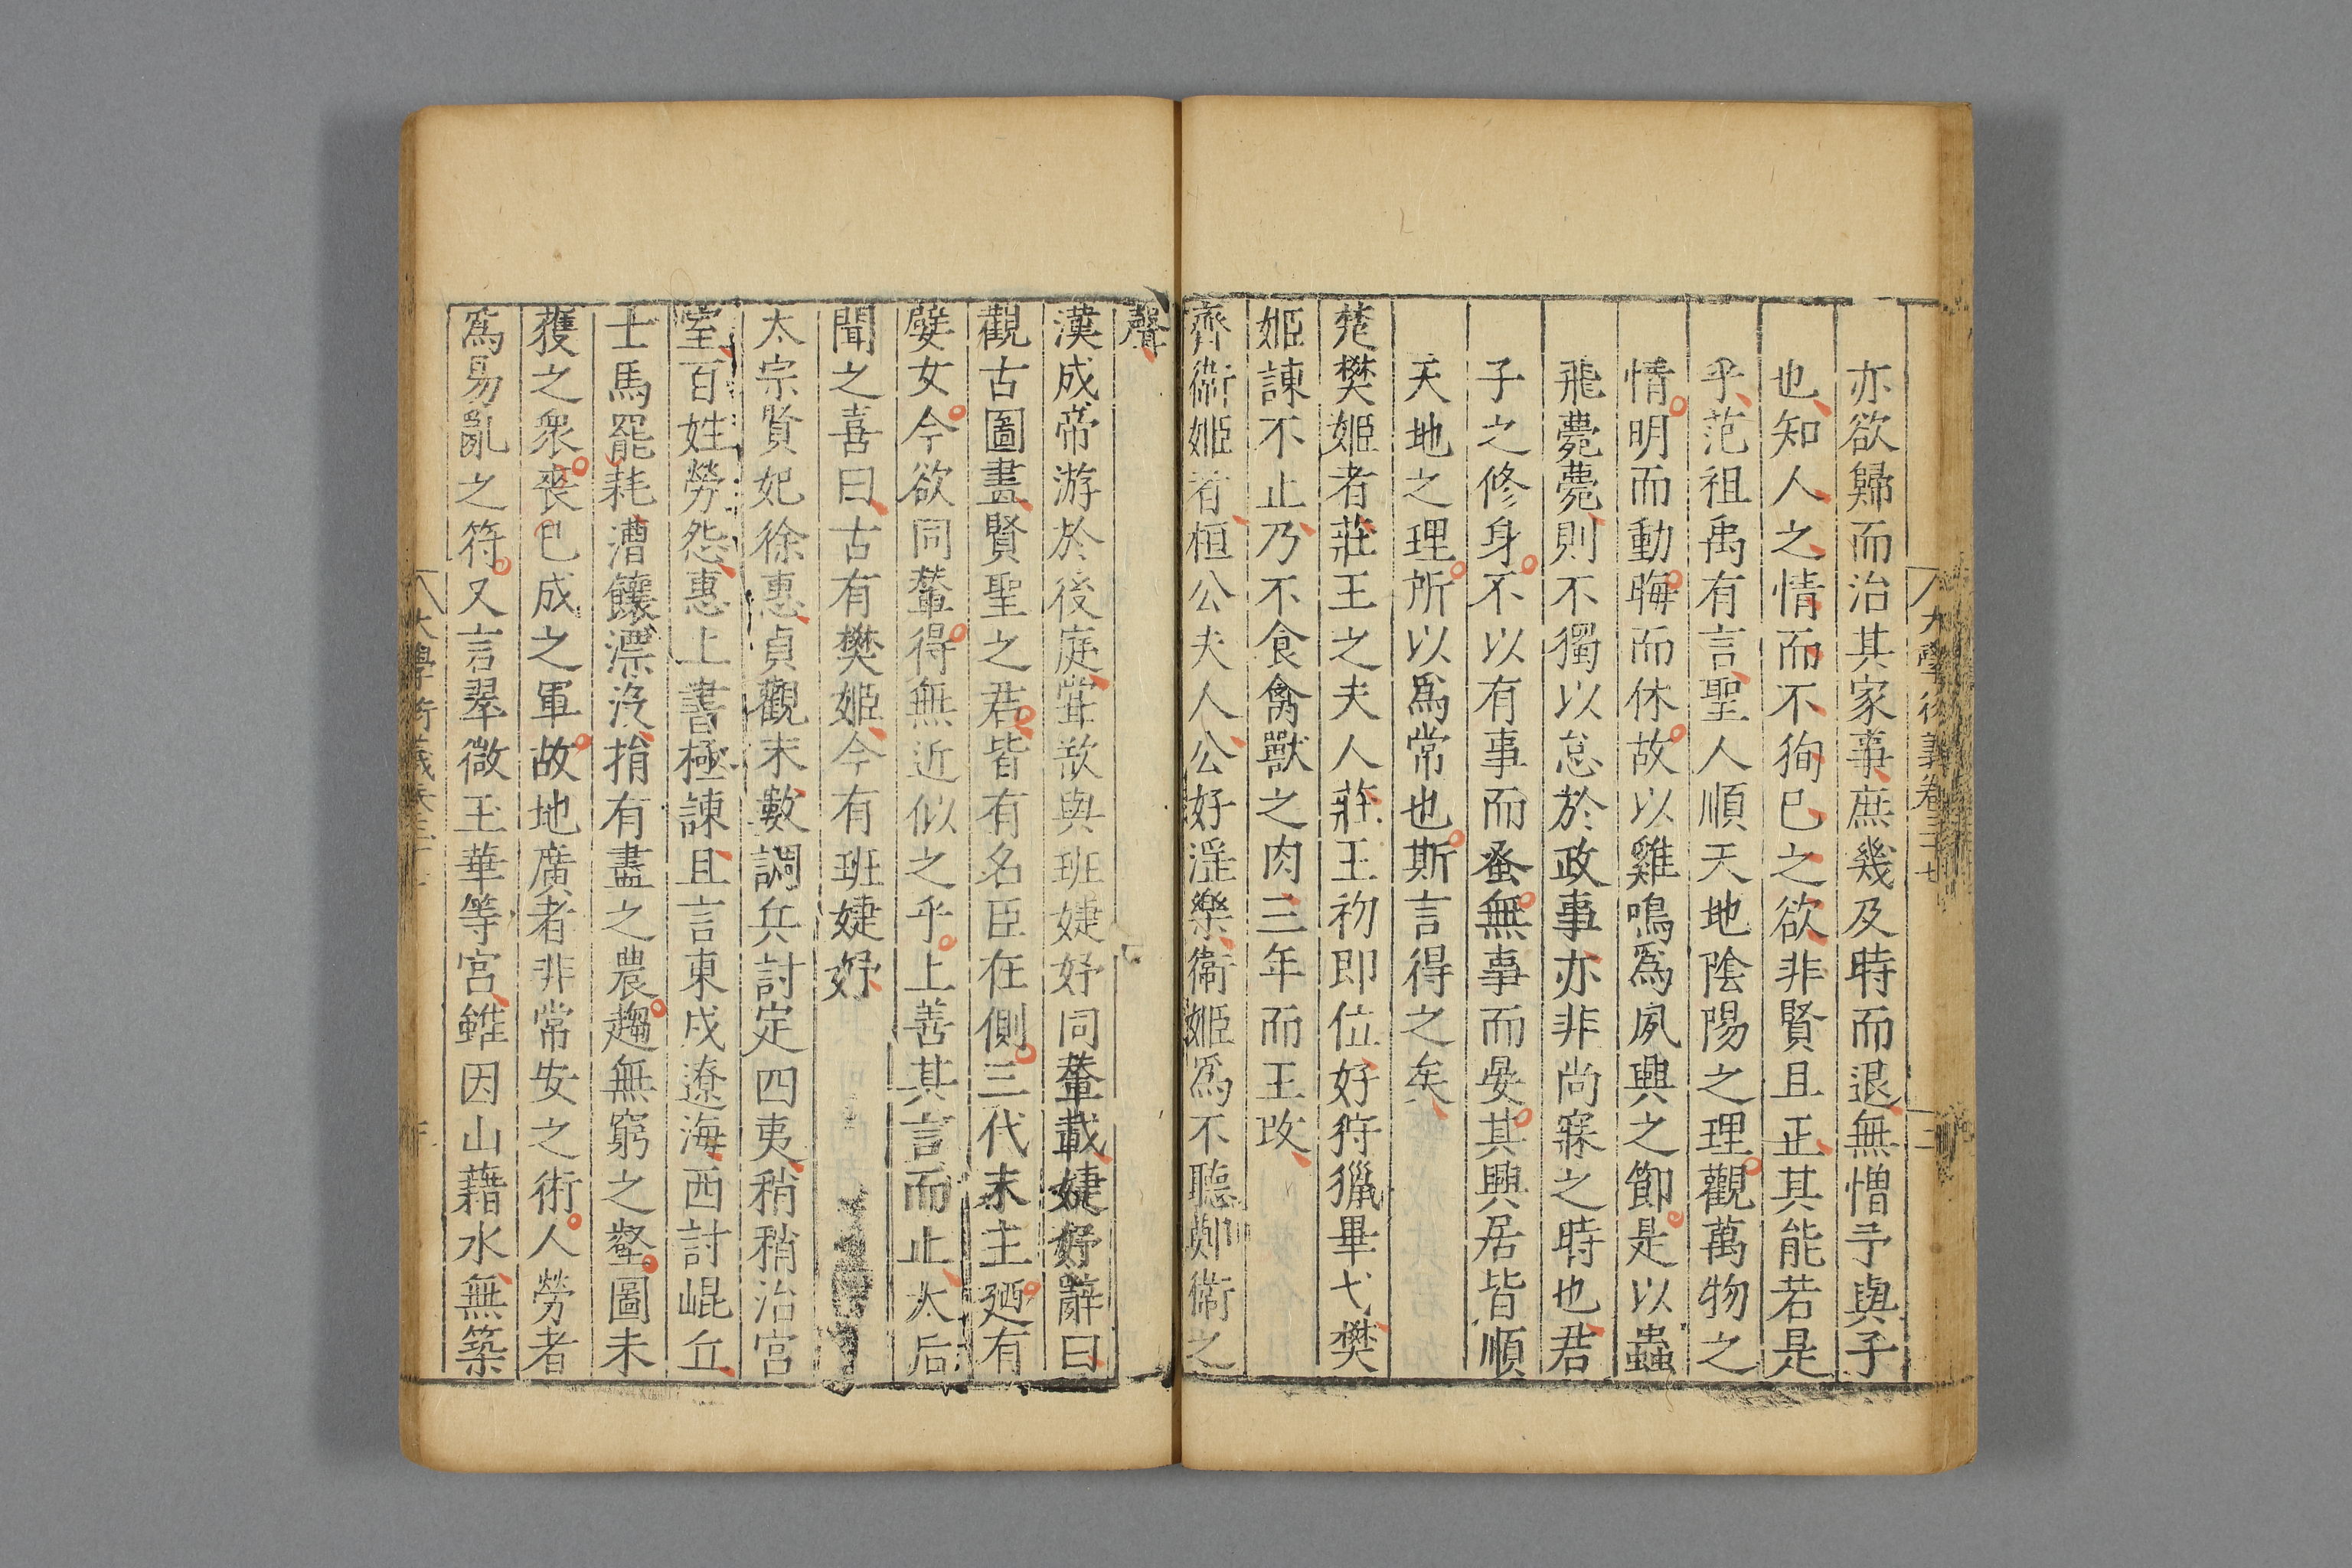 亦欲歸而治其家事庶幾及時而退無憎予與子
也知人之情而不徇已之欲非賢且正其能若是
乎范祖禹有言聖人順天地陰陽之理觀萬物之
情明而動晦而休故以雞鳴爲夙興之節是以蟲
飛薨薨則不獨以怠於政事亦非尚寐之時也君
子之修身不以有事而蚤無事而晏其興居皆順
天地之理所以爲常也斯言得之矣
楚樊姬者莊王之夫人莊王初即位好狩獵畢弋樊
姬諫不止乃不食禽獸之肉三年而王改
齊衛姬者桓公夫人公好淫樂衛姬爲不聽鄭衛之
聲
漢成帝游於後庭嘗欲與班婕妤同輦載婕妤辭曰
觀古圖畫賢聖之君皆有名臣在側三代末主廼有
嬖女今欲同輦得無近似之乎上善其言而止太后
聞之喜曰古有樊姬今有班婕妤
太宗賢妃徐惠貞觀末數調兵討定四夷稍稍治宮
室百姓勞怨惠上書極諫且言東戍遼海西討崐丘
士馬罷耗漕饟漂没捐有盡之農趨無窮之壑圖未
獲之衆喪已成之軍故地廣者非常安之術人勞者
爲易亂之符又言翠微玉華等宮雖因山藉水無築
大學衍義卷三十